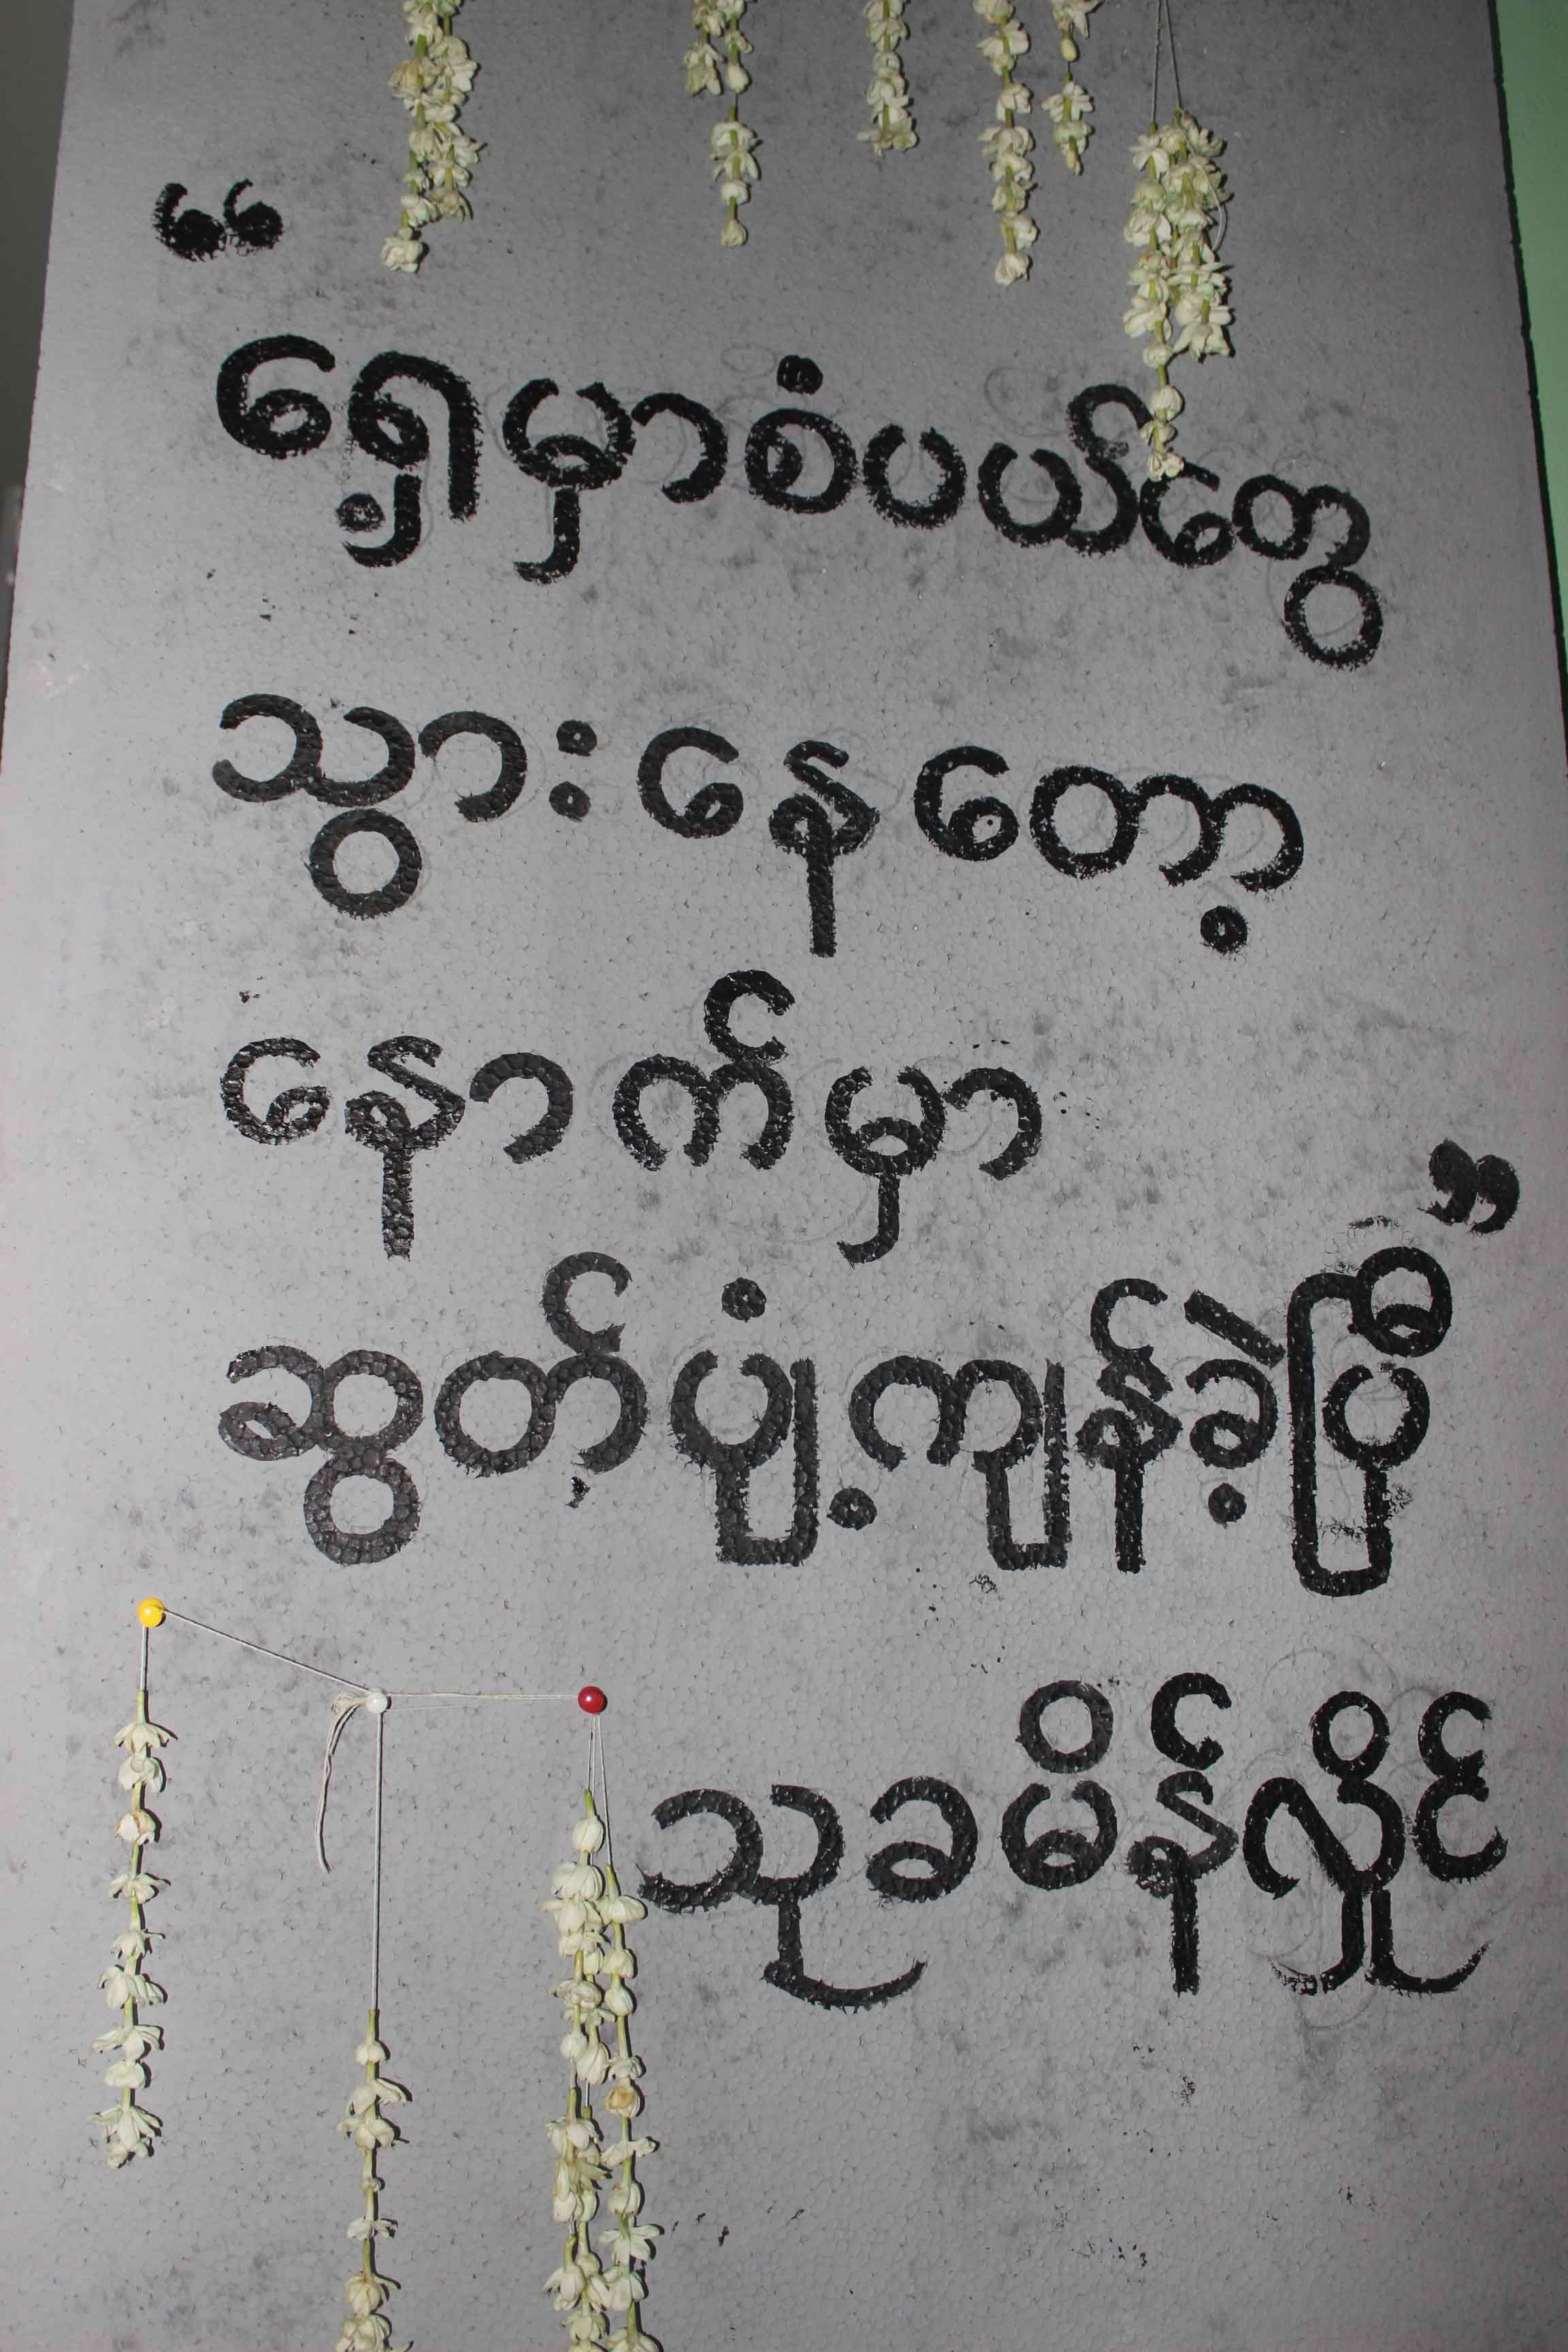 “
ရှေ့မှာစံပယ်တွေ
သွားနေတော့
နောက်မှာ
ဆွတ်ပျံ့ကျန်ခဲ့ပြီ”
သုခမိန်လှိုင်